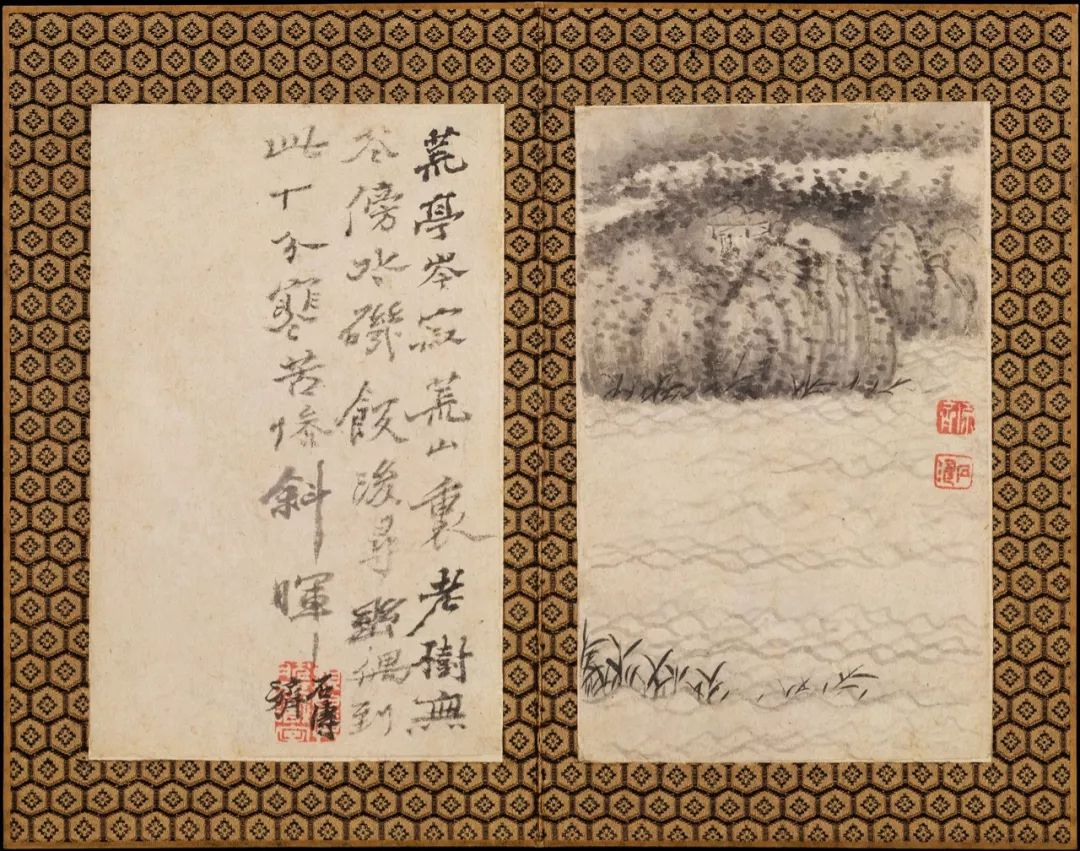 荒亭岑寂荒山裏老樹無
傍水磯飯後尋幽偶到
此十分寒苦慘斜暉
石濤
濟